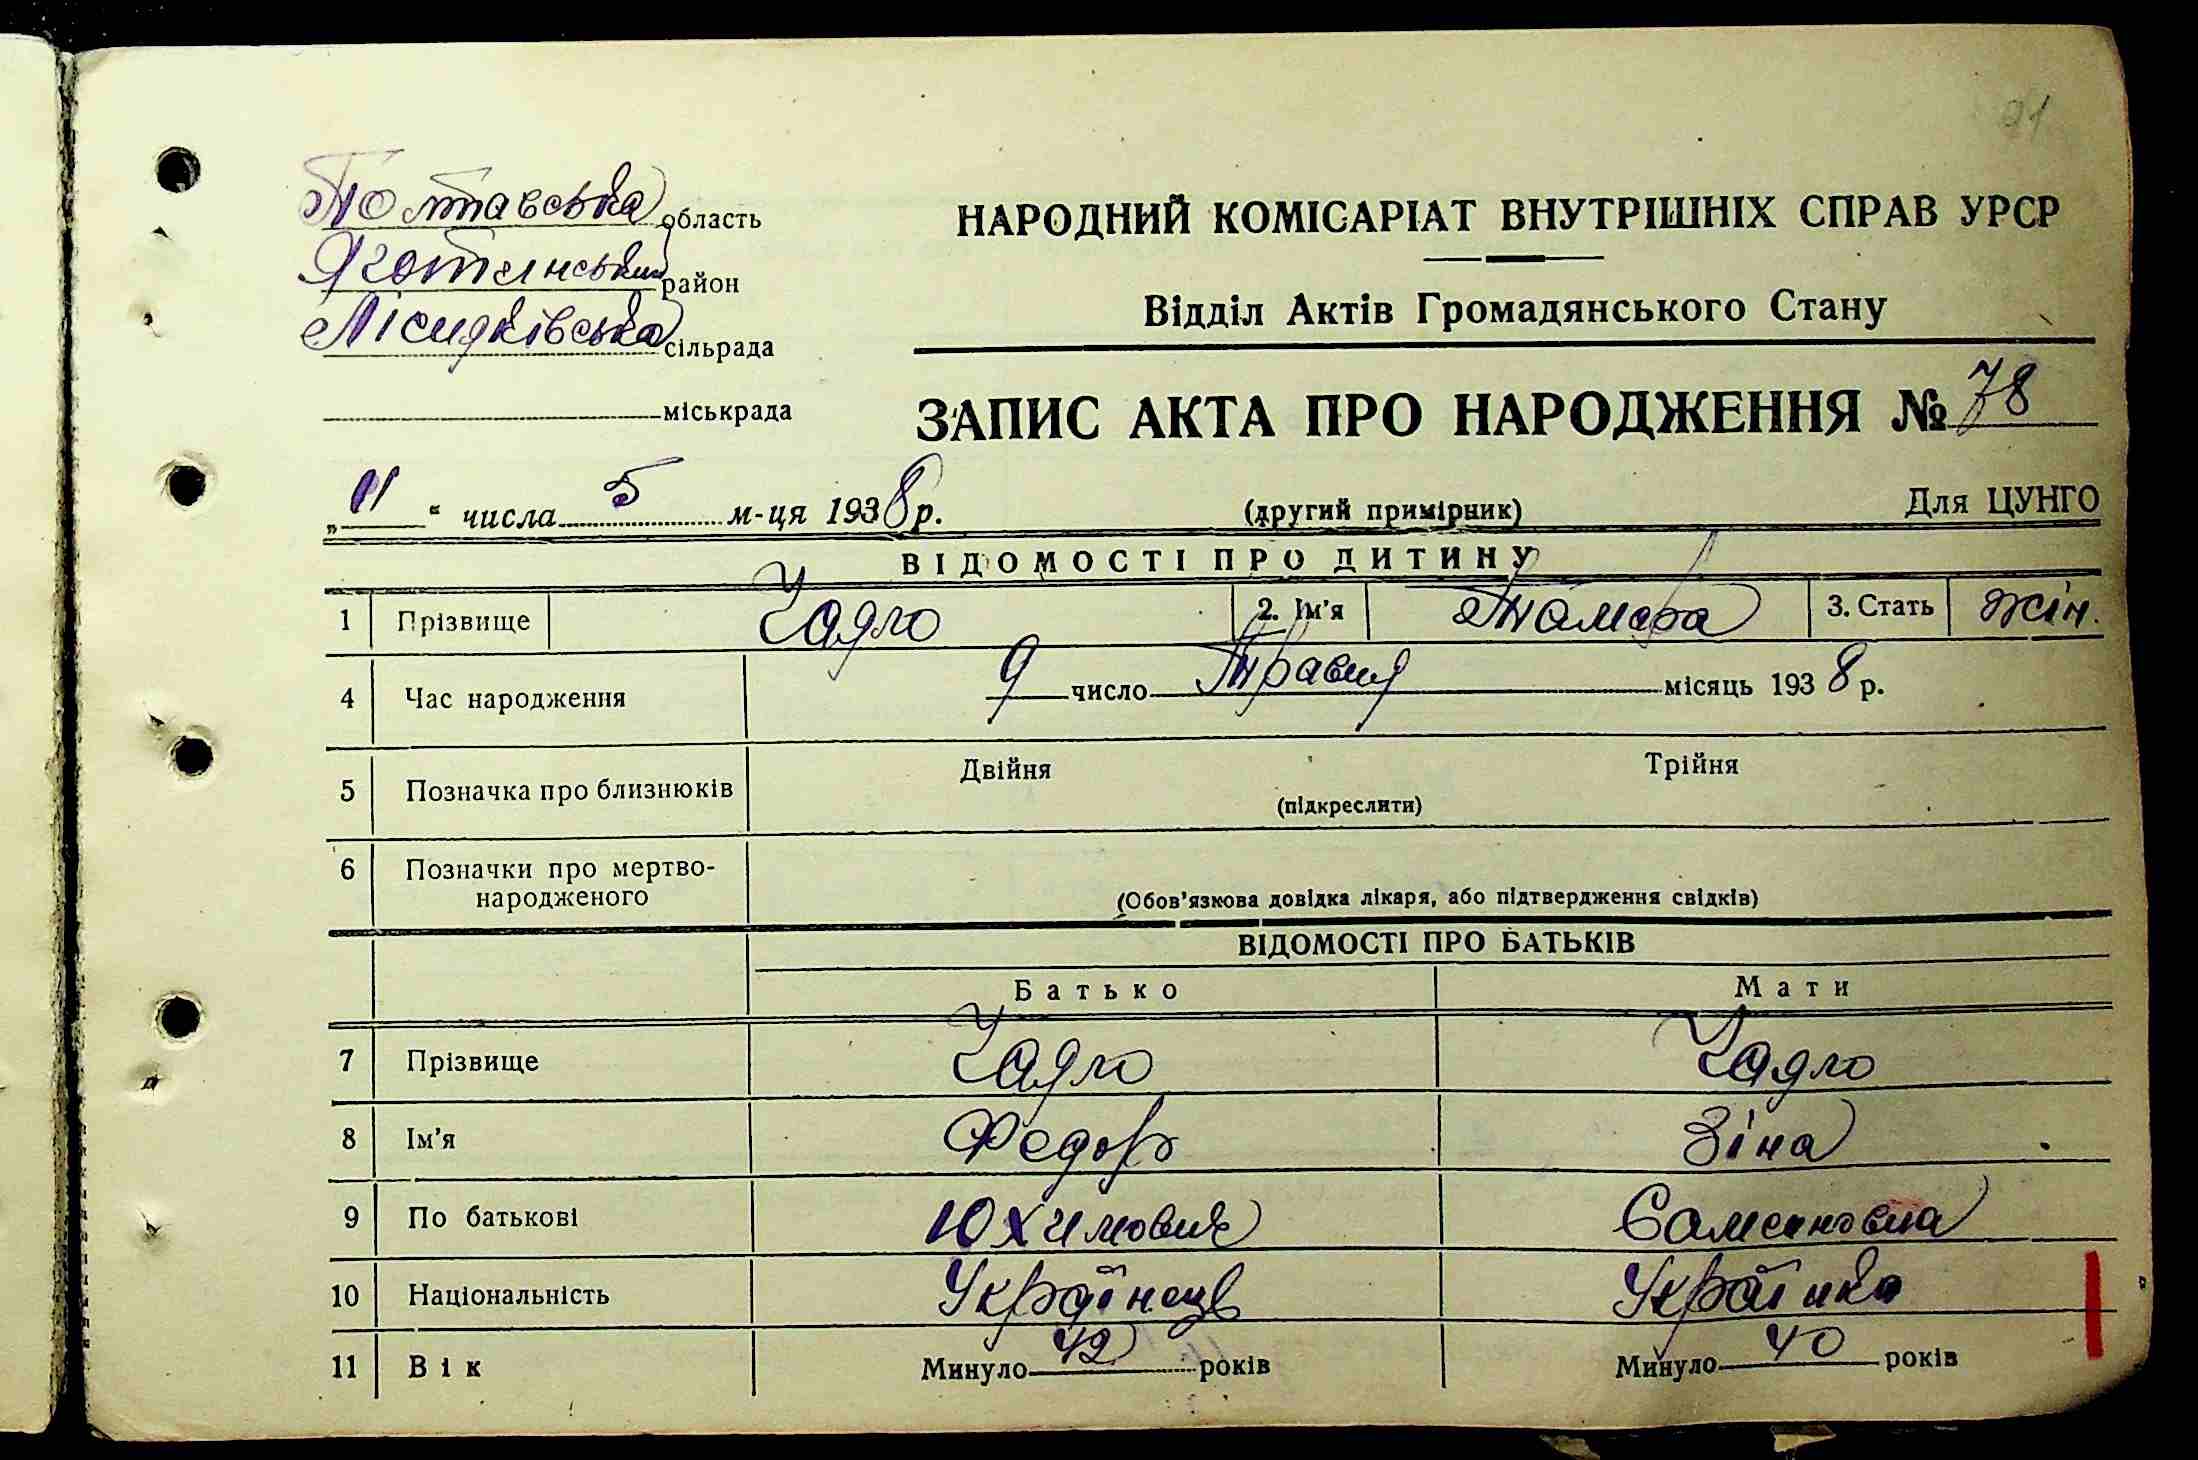 91
Полтавська область
Яготинський район
Лісняківська сільрада
міськрада
НАРОДНИЙ КОМІСАРІАТ ВНУТРІШНІХ СПРАВ УРСР
Відділ Актів Громадянського Стану
ЗАПИС АКТА ПРО НАРОДЖЕННЯ № 78
„11“ числа 5 м-ця 1938 р. (другий примірник) Для ЦУНГО
ВІДОМОСТІ ПРО ДИТИНУ
1 Прізвище Чадло 2. Ім'я Тамара 3. Стать жін.
4 Час народження 9 число Травня місяць 1938 р.
5 Позначка про близнюків Двійня Трійня
(підкреслити)
6 Позначки про мертво-
народженого (Обов'язкова довідка лікаря, або підтвердження свідків)
ВІДОМОСТІ ПРО БАТЬКІВ
Батько Мати
7 Прізвище Чадло Чадло
8 Ім'я Федор Зіна
9 По батькові Юхимович Самсоновна
10 Національність Українець Українка
11 Вік Минуло 42 років Минуло 40 років